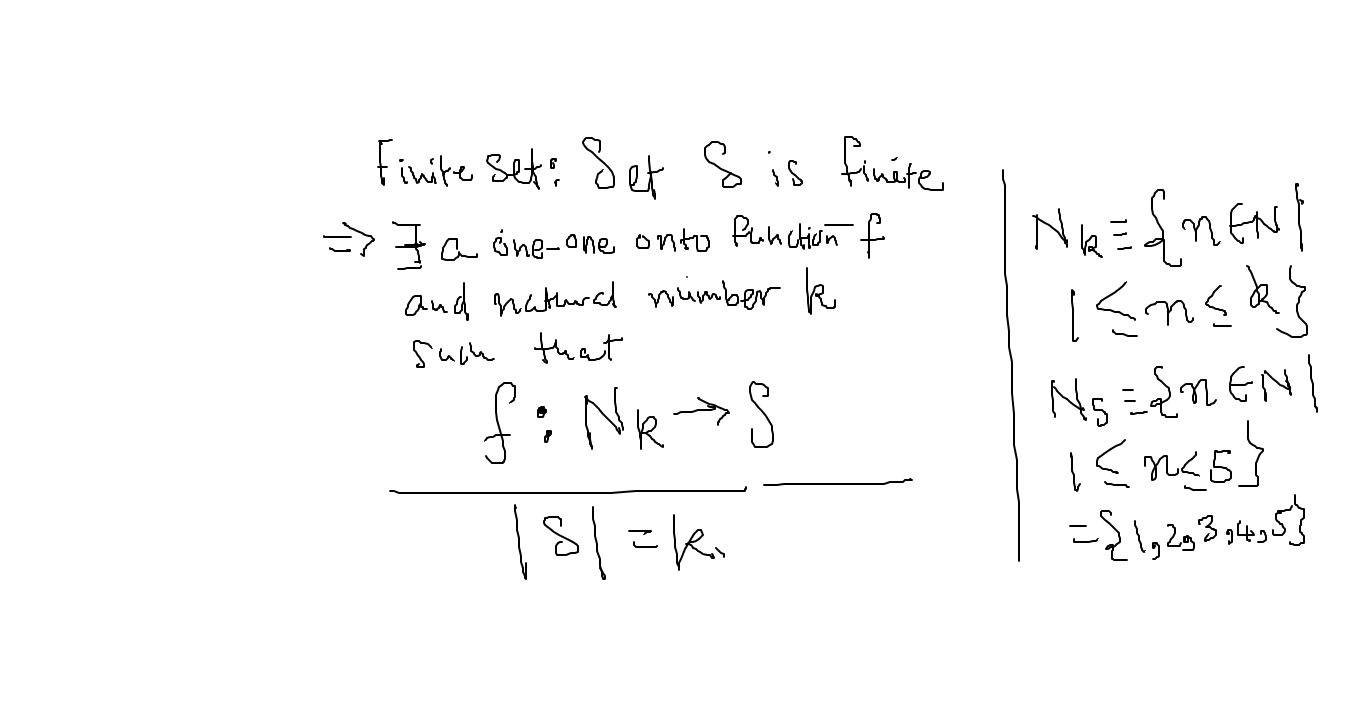 Finite set: Set S is finite
⇒ ∃ a one-one onto function f
and natural number k
such that
f : N_k → S
|S| = k.
N_k ≡ {n ∈ N |
1 ≤ n ≤ k}
N_5 ≡ {n ∈ N |
1 ≤ n ≤ 5}
= {1, 2, 3, 4, 5}